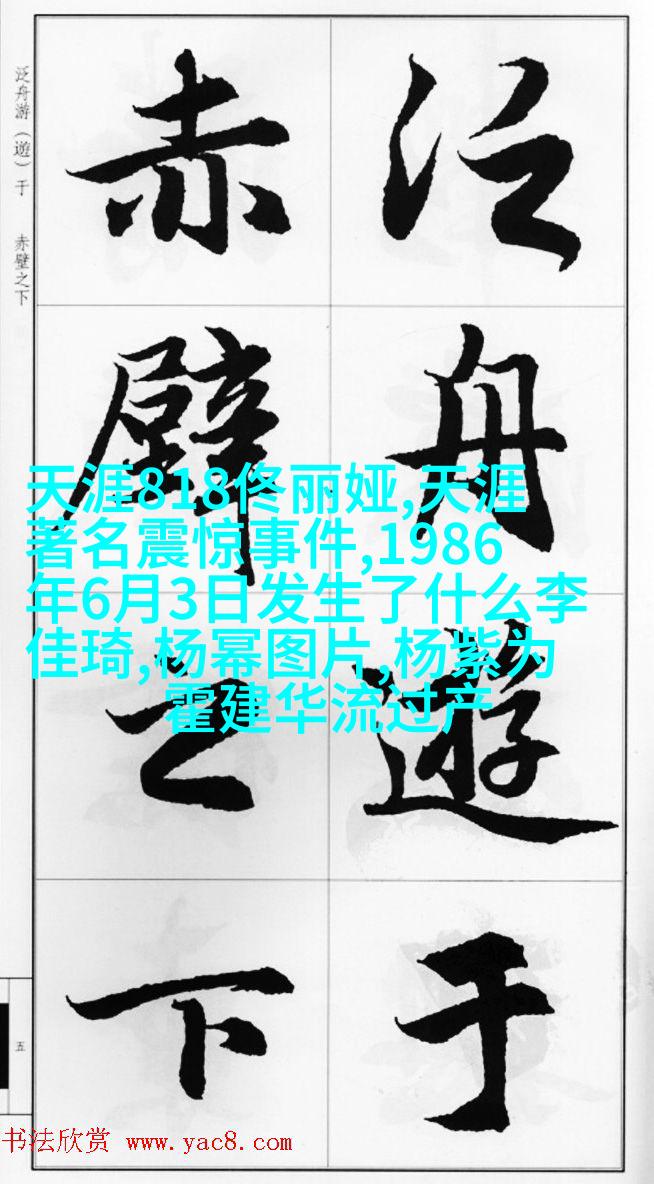 泛舟游（遊）于　赤壁之下
泛舟遊于
赤壁之下
天涯818佟丽娅,天涯
著名震惊事件,1986
年6月3日发生了什么李
佳琦,杨幂图片,杨紫为
霍建华流过产
五
书法欣赏 www.yac8.com